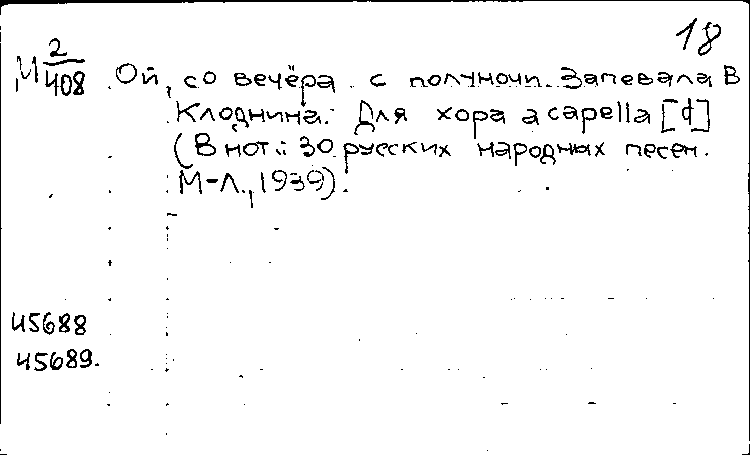 18
М 2/408 Ой, со вечёра с полуночи. Запевала В
Клоднина. Для хора a capella [d]
(В нот.: 30 русских народных песен.
М-Л., 1939).
45688
45689.